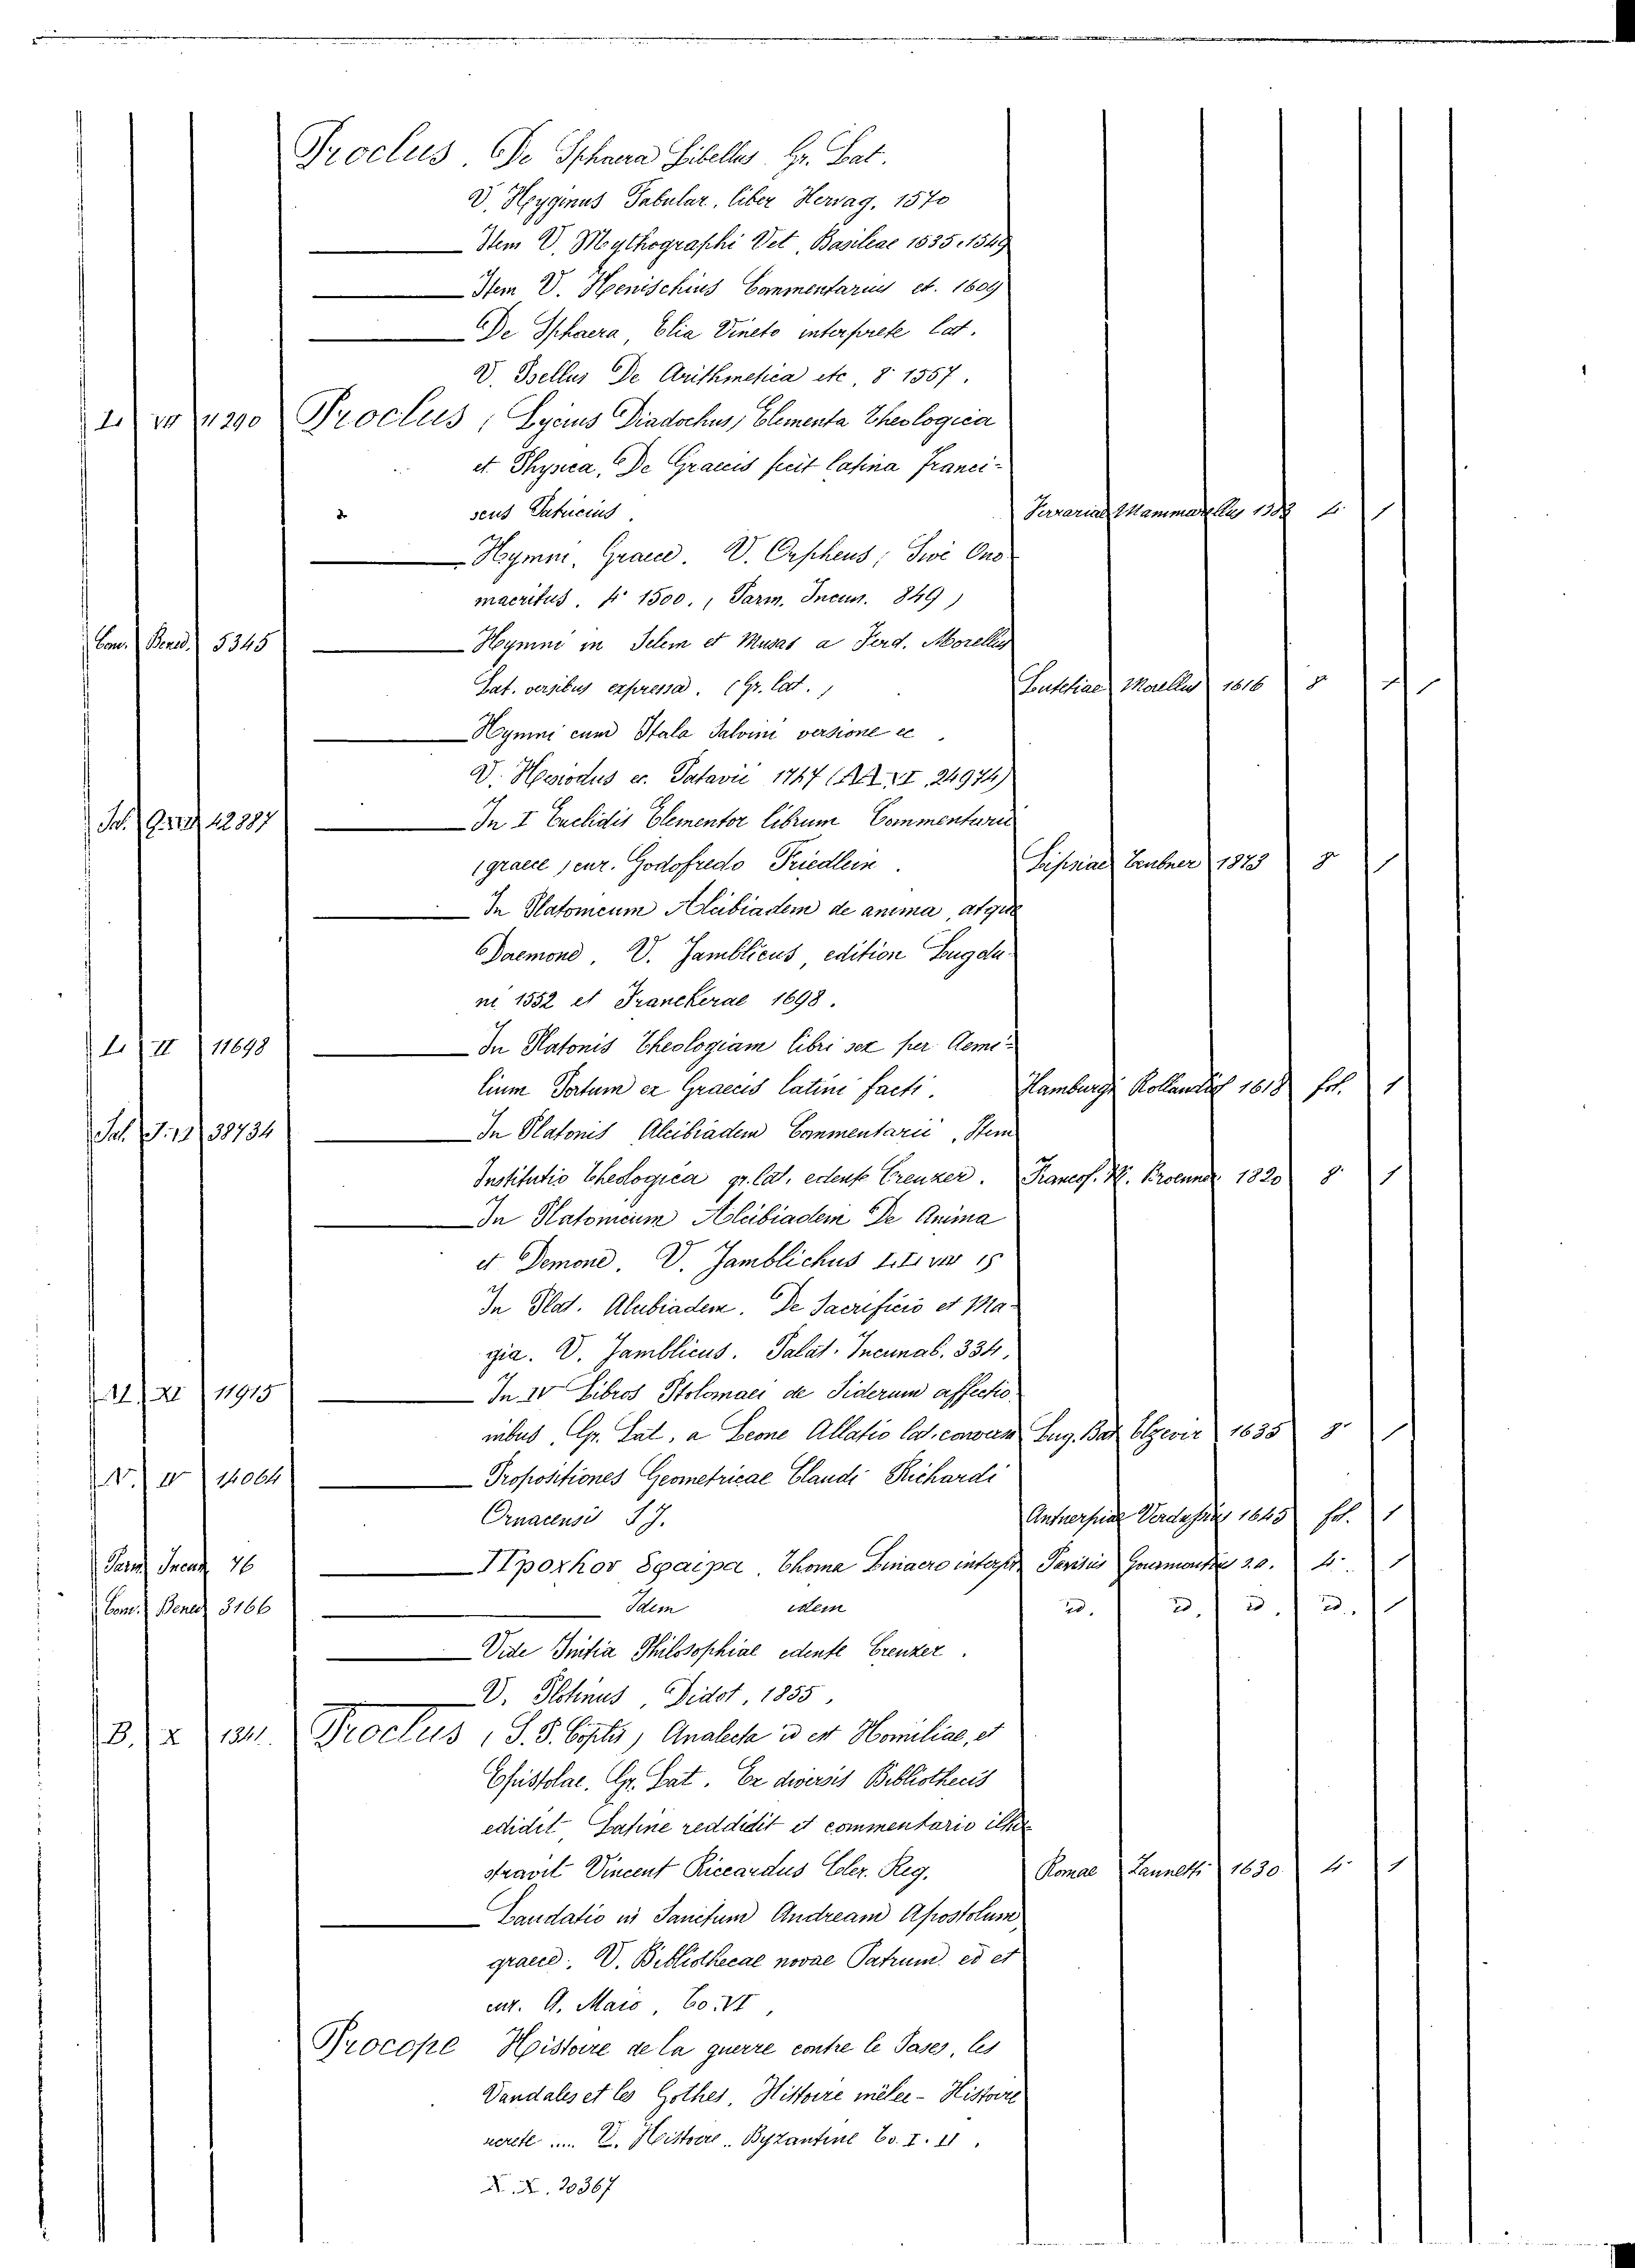 Proclus. De Sphaera Libellus Gr. Lat.
V. Hyginus Fabular. liber Hervag. 1570
Item V. Mythographi Vet. Basileae 1535. 1549
Item V. Henischius Commentarius et. 1609
De Sphaera, Elia Vineto interprete lat.
V. Psellus De Arithmetica etc, 8° 1557.
L. VII 4290 Proclus, Lycius Diadochus, Elementa Theologica
et Physica, De Graecis fecit latina Franci-
scus Patricius. Ferrariae Mammarellus 1583 4° 1
Hymni, Graece. V. Orpheus; Sive Ono
macritus. 4° 1500., Parm. Incun. 849)
Com. Bened. 5345 Hymni in Solem et Musas a Ferd. Morellus
Lat. versibus expressa. (Gr. lat.) Lutetiae Morellus 1616 8° 1
Hymni cum Itala Salvini versione
V. Hesiodus Patavii 1747 24974)
42887 In I Euclidis Elementor librum Commentarii
(graece) cur. Godofredo Friedlein. Lipsiae Teubner 1873 8° 1
In Platonicum Alcibiadem de anima, atque
Daemone, V. Jamblicus, edition Lugdu-
ni 1552 et Franckerae 1698.
L. II 11698 In Platonis Theologiam libri sex per Aemi-
lium Portum ex Graecis latini facti. Hamburgi Rollandus 1618 fol. 1
38734 In Platonis Alcibiadem Commentarii, Item
Institutio Theologica gr. lat. edente Creuzer. Francof. M. Broenner 1820 8° 1
In Platonicum Alcibiadem De Anima
et Demone. V. Jamblichus
In Plat. Alcibiadem. De Sacrificio et Ma-
gia. V. Jamblicus. Palat. Incunab. 334.
XI 11915 In IV Libros Ptolomaei de Siderum affectio
nibus, Gr. Lat., a Leone Allatio lat. conversa Lug. Bat Elzevir 1635 8° 1
N. IV 14064 Propositiones Geometricae Claudi Richardi
Ornacensis S J. Antuerpiae Verdussius 1645 fol. 1
Parm Incun 76 Προκλου Σφαιρα. Thoma Linacro interpr. Parisiis Gourmontius s.a. 4° 1
Com. Bened 3166 Idem idem id. id. id. id. 1
Vide Initia Philosophiae edente Creuzer.
V. Plotinus, Didot, 1855,
B. X 1341. Proclus, Analecta id est Homiliae, et
Epistolae. Gr. Lat. Ex diversis Bibliothecis
edidit, Latine reddidit et commentario illu-
stravit Vincent Riccardus Cler. Reg. Romae Zannetti 1630 4° 1
Laudatio in Sanctum Andream Apostolum,
graece. V. Bibliothecae novae Patrum ed et
cur. A. Maio, To. VI,
Procope Histoire de la guerre contre le Pases, les
Vandales et les Gothes, Histoire mêlée - Histoire
secrete .... V. Histoire Byzantine To. I. II.
X. X. 20367